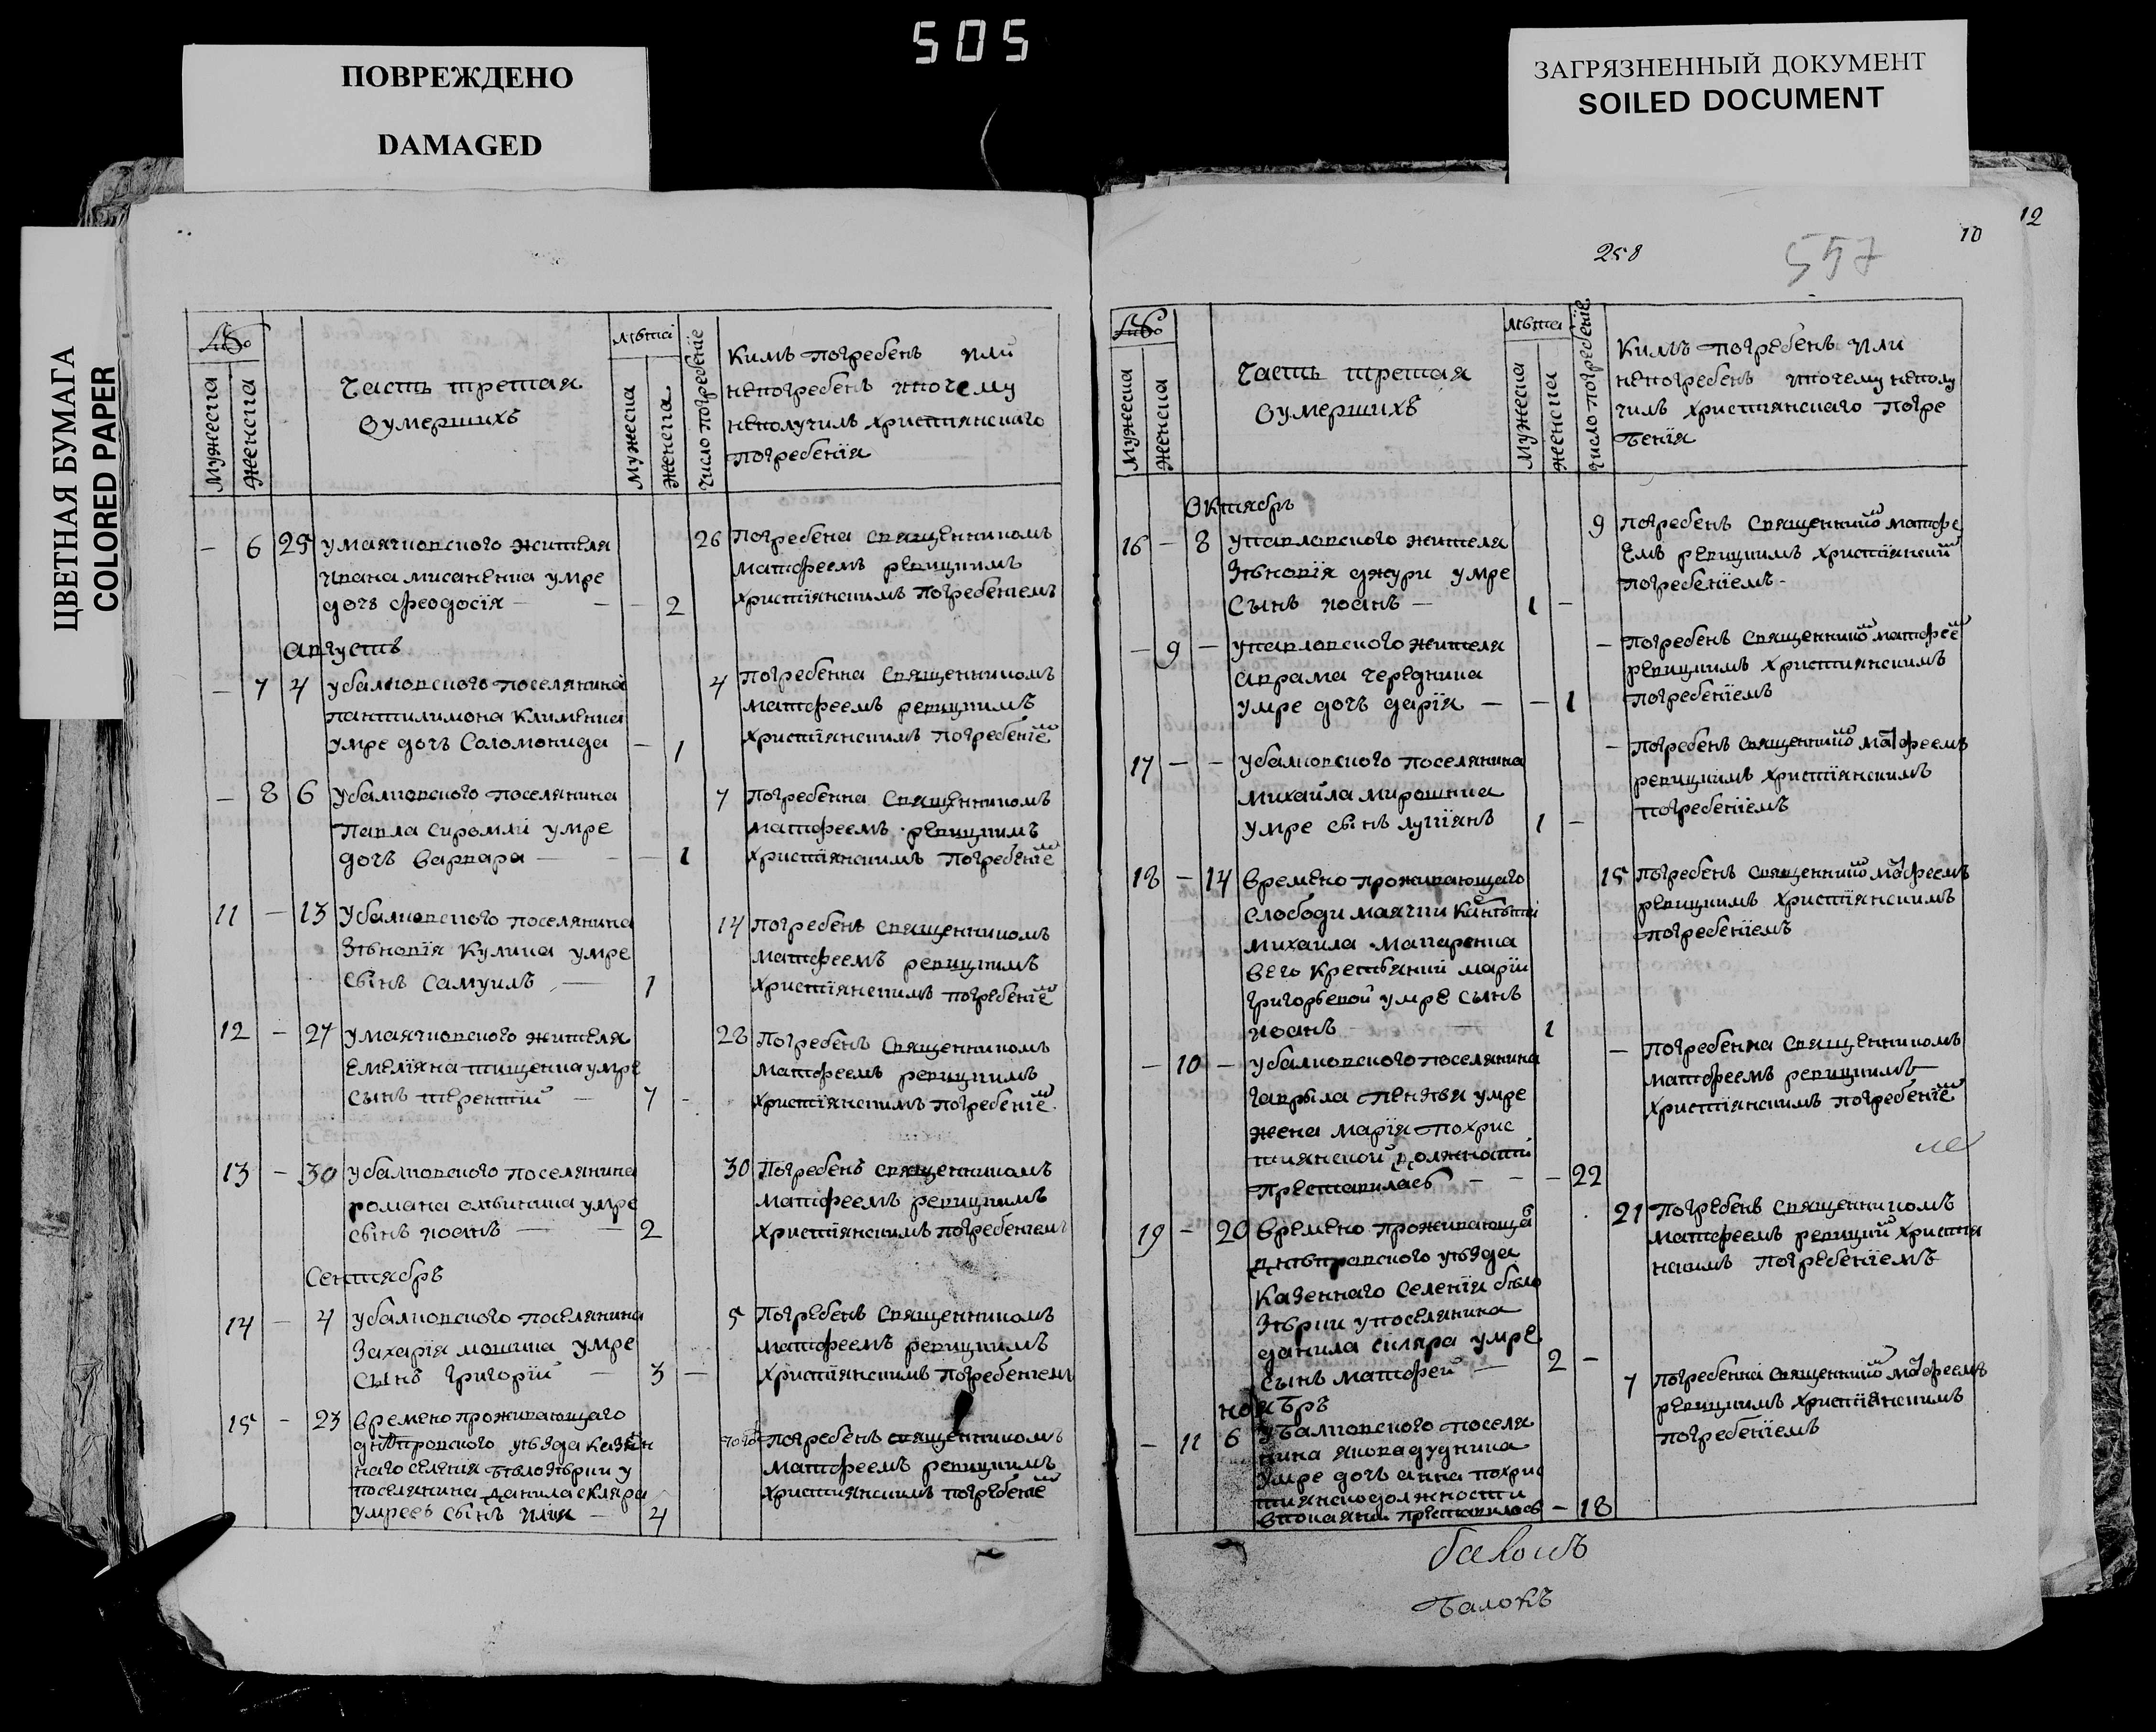 505
ПОВРЕЖДЕНО
DAMAGED
ЗАГРЯЗНЕННЫЙ ДОКУМЕНТ
SOILED DOCUMENT
ЦВЕТНАЯ БУМАГА
COLORED PAPER
Мужеска
Женска
Часть третая
Oумершихъ
лѣта
Мужеска
Женска
Число погребенïе
Кимъ погребенъ или
непогребенъ ипочему
неполучилъ христïянскаго
погребенïя
- 6 25 умаячковского жителя
ивана мисаненка умре
дочъ феодосïя - - - 2
26 Погребена священникомъ
матфеемъ ревицкимъ
христïянскимъ погребенïемъ
августъ
- 7 4 убалковского поселянина
пантилимона клименка
умре дочъ Соломонида - 1
4 Погребенна священникомъ
матфеемъ ревицкимъ
христïянскимъ погребенïем
- 8 6 убалковского поселянина
павла сиромлï умре
дочъ варвара - - - 1
7 Погребенна священникомъ
матфеемъ ревицкимъ
христïянскимъ погребенïем
11 - 13 убалковского поселянина
Зѣновïя кулика умре
сынъ самуилъ - 1
14 Погребенъ священникомъ
матфеемъ ревицкимъ
христïянскимъ погребенïем
12 - 27 умаячковского жителя
емелïяна тищенка умре
сынъ терентïй - 7 -
28 Погребенъ священникомъ
матфеемъ ревицкимъ
христïянскимъ погребенïем
13 - 30 убалковского поселянина
романа умре
сынъ иоанъ - - 2
30 Погребенъ священникомъ
матфеемъ ревицкимъ
христïянскимъ погребенïемъ
Сентябръ
14 - 4 убалковского поселянина
Захарïя мошика умре
сынъ григорïй - 3 -
5 Погребенъ священникомъ
матфеемъ ревицкимъ
христïянскимъ погребенïемъ
15 - 23 времено проживающаго
днѣпровского уѣзда казен
наго селенïя бѣлозѣрки у
поселянина данила скляра
умреев сынъ илïя - 4
Погребенъ священникомъ
матфеемъ ревицкимъ
христïянскимъ погребенïем
12
10
258
557
Мужеска
Женска
Часть третая
Oумершихъ
лѣта
Мужеска
женска
Число погребенïе
Кимъ погребенъ или
непогребенъ ипочему неполу
чилъ христïянскаго погре
бенïя
Октябръ
16 - 8 упавловского жителя
Зѣновïя джури умре
Сынъ иоанъ - 1 -
9 погребенъ священником матфе
емъ ревицкимъ христïянским
погребенïемъ -
- 9 - упавловского жителя
аврама чередника
умре дочъ дарïя - - 1
- погребенъ священником матфеем
ревицкимъ христïянскимъ
погребенïемъ
17 - - убалковского поселянина
михайла мирошника
умре сынъ лукïянъ 1 -
- погребенъ священником матфеемъ
ревицкимъ христïянскимъ
погребенïемъ
18 - 14 времено проживающаго
слободи маячки
михаила макаренка
вего крестьянки марïи
григорьевой умре сынъ
иоанъ - 1
15 погребенъ священником матфеемъ
ревицкимъ христïянскимъ
погребенïемъ
- 10 - убалковского поселянина
гаврыла умре
жена марïя похрис
тиянской должности
преставиласъ - - - 22
- погребенна священникомъ
матфеемъ ревицкимъ
христïянскимъ погребенïем
19 - 20 времено проживающаго
днѣправского уѣзда
Казеннаго селенïя бѣло
зѣрки упоселянина
данила скляра умре
сынъ матфей - 2 -
21 погребенъ священникомъ
матфеемъ ревицким христïя
нкимъ погребенïемъ
ноябръ
- 11 6 убалковского поселя
нина якова дудника
умре дочъ анна похрис
тиянско должности
впокаянïи преставиласъ - 18
7 погребенна священником матфеемъ
ревицкимъ христïянскимъ
погребенïемъ
балокъ
балокъ